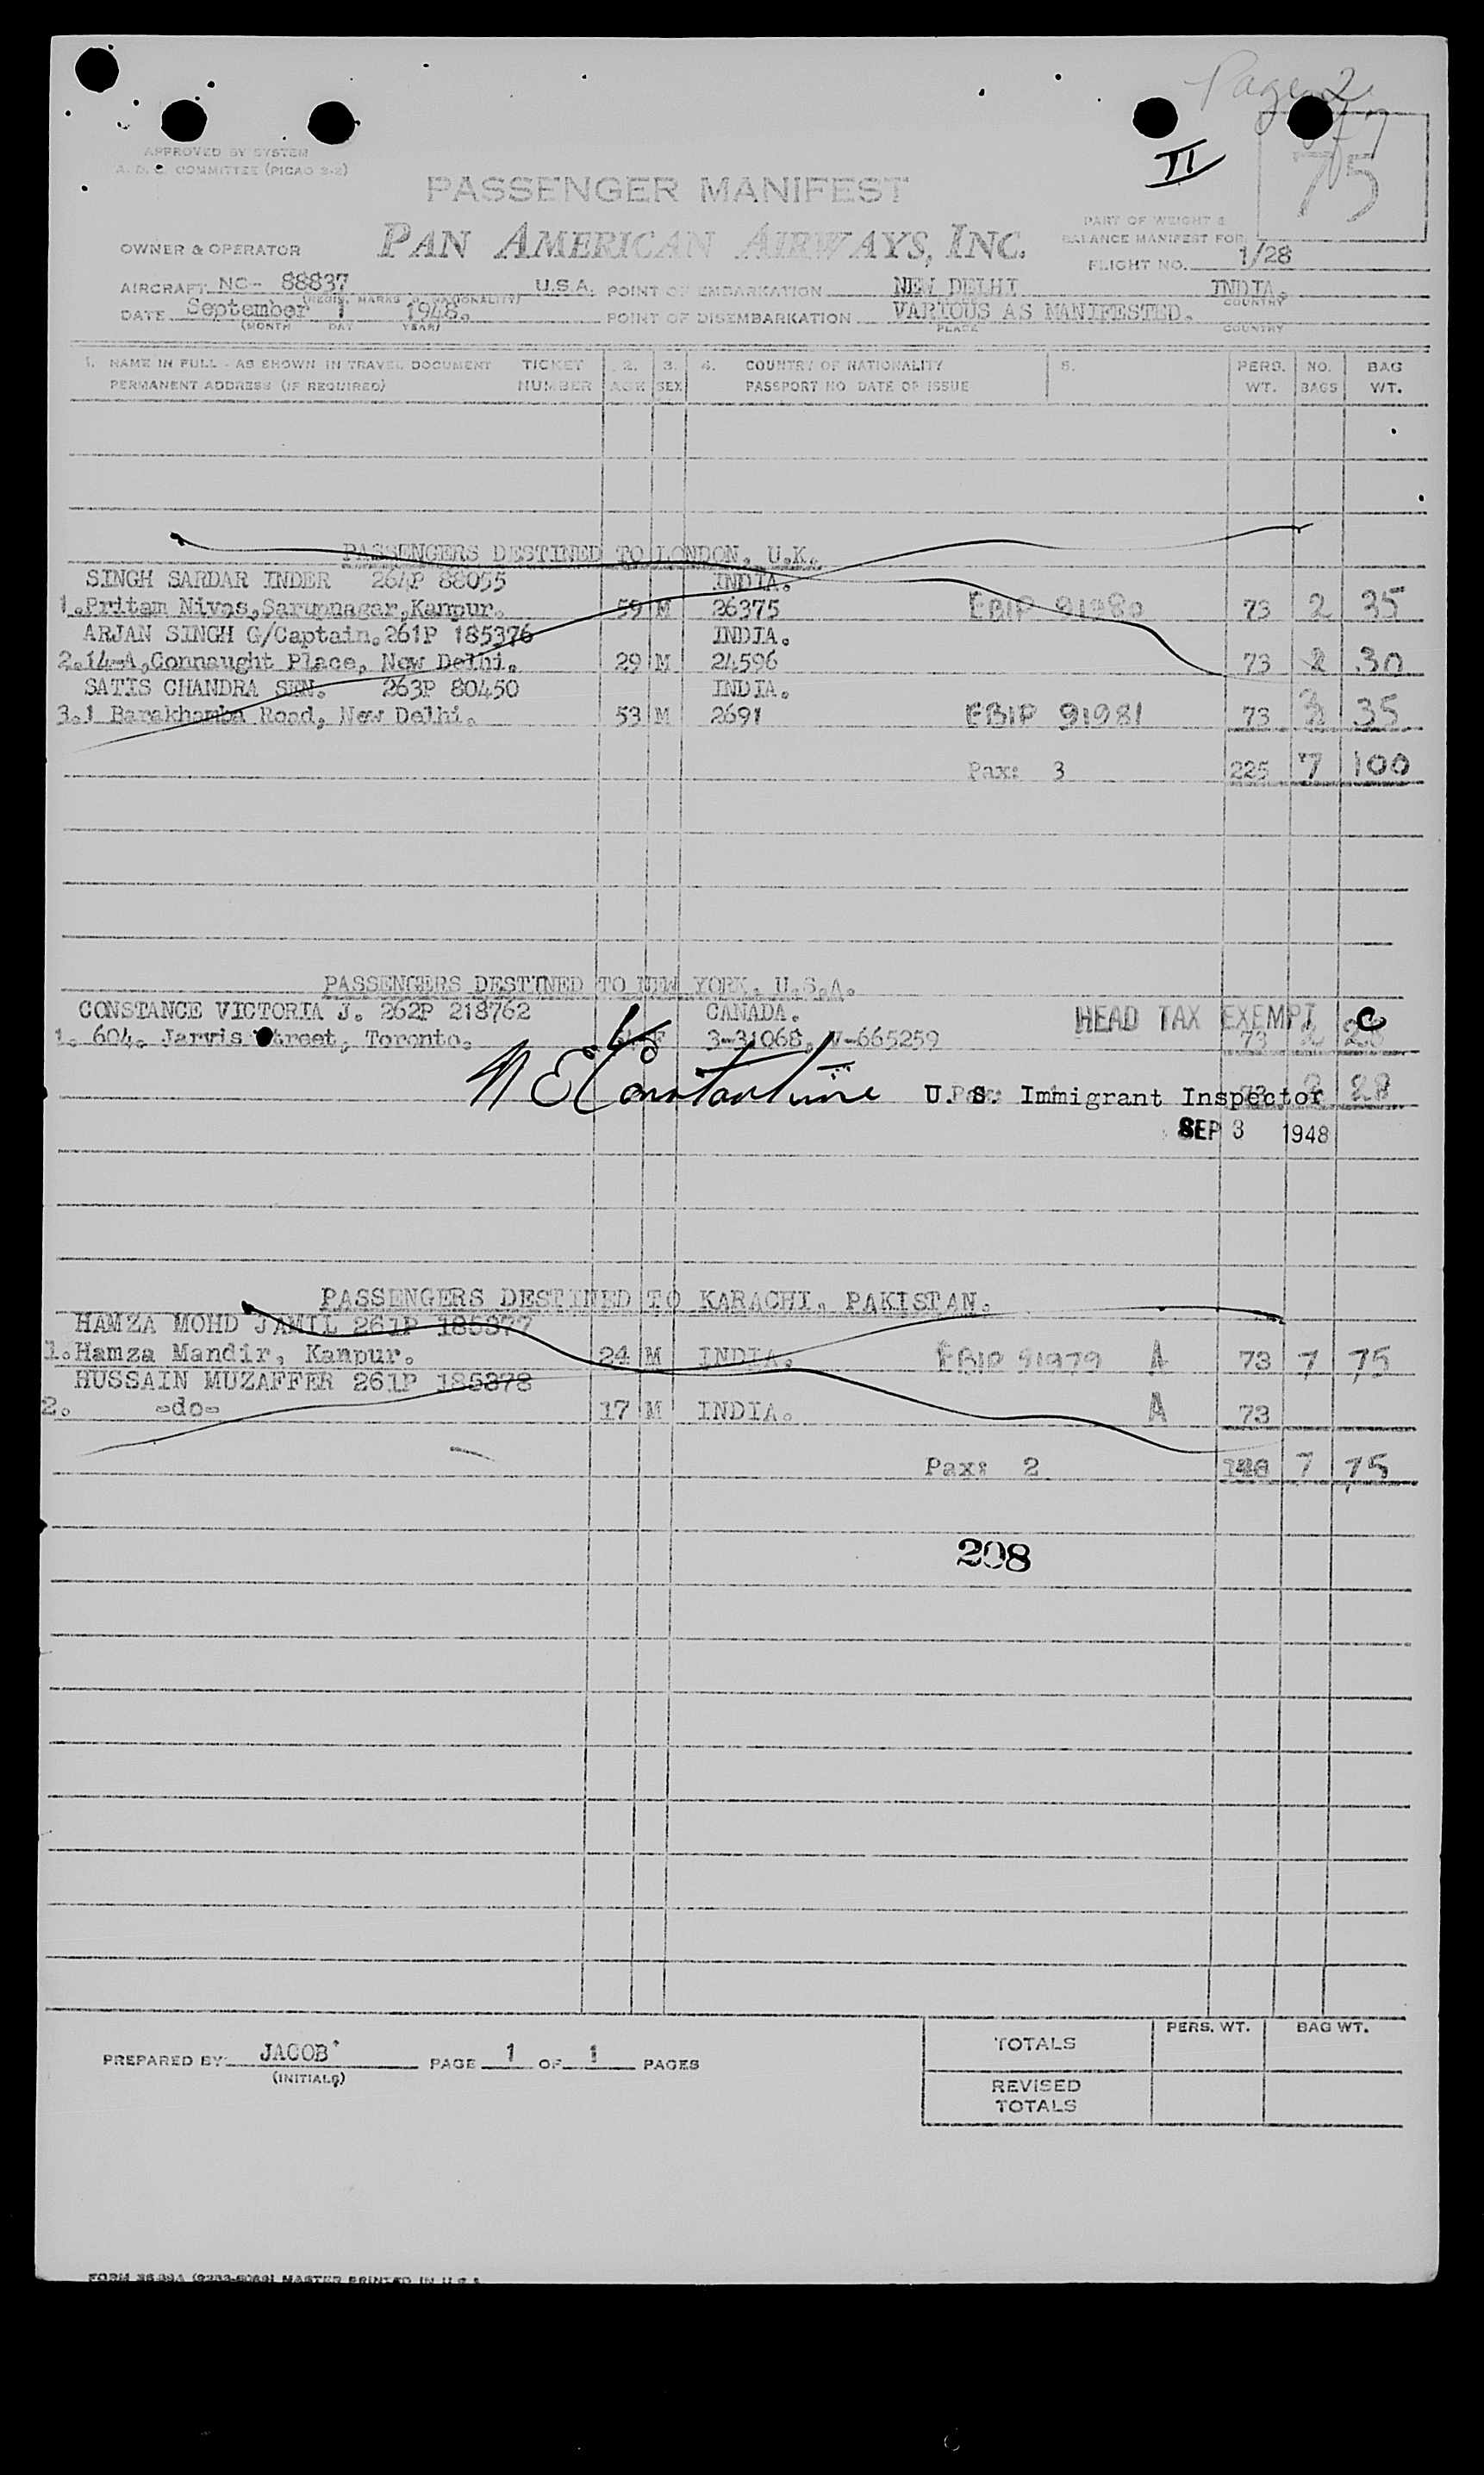 Page 2
II
75
APPROVED BY SYSTEM
A. D. C. COMMITTEE (PICAO 2-2)
PASSENGER MANIFEST
PAN AMERICAN AIRWAYS, INC.
PART OF WEIGHT &
BALANCE MANIFEST FOR
OWNER & OPERATOR
FLIGHT NO. 1/28
AIRCRAFT NC- 88837 U.S.A. POINT OF EMBARKATION NEW DELHI INDIA.
(REGIS. MARKS & NATIONALITY) COUNTRY
DATE September 1 1948. POINT OF DISEMBARKATION VARIOUS AS MANIFESTED.
(MONTH DAY YEAR) PLACE COUNTRY
1. NAME IN FULL - AS SHOWN IN TRAVEL DOCUMENT TICKET 2. 3. 4. COUNTRY OF NATIONALITY 5. PERS. NO. BAG
PERMANENT ADDRESS (IF REQUIRED) NUMBER AGE SEX PASSPORT NO. DATE OF ISSUE WT. BAGS WT.
PASSENGERS DESTINED TO LONDON, U.K.
SINGH SARDAR INDER 264P 88055 INDIA.
1.Pritam Nivas,Sarupnagar,Kanpur. 59 M 26375 EBIP 91980 73 2 35
ARJAN SINGH G/Captain.261P 185376 INDIA.
2.14-A,Connaught Place, New Delhi. 29 M 24596 73 2 30
SATIS CHANDRA SEN. 263P 80450 INDIA.
3.1 Barakhamba Road, New Delhi. 53 M 2691 EBIP 91981 73 3 35
Pax: 3 225 7 100
PASSENGERS DESTINED TO NEW YORK, U.S.A.
CONSTANCE VICTORIA J. 262P 218762 CANADA. HEAD TAX EXEMPT C
1. 604. Jarvis Street, Toronto. F 3-31068, V-665259 73 2 28
N E Constantine U. S. Immigrant Inspector 2 28
SEP 3 1948
PASSENGERS DESTINED TO KARACHI. PAKISTAN.
HAMZA MOHD JAMIL 261P 185377
1.Hamza Mandir, Kanpur. 24 M INDIA. EBIP 91979 A 73 7 75
HUSSAIN MUZAFFER 261P 185378
2. -do- 17 M INDIA. A 73
Pax: 2 146 7 75
208
PREPARED BY: JACOB PAGE 1 OF 1 PAGES
(INITIALS)
PERS. WT. BAG WT.
TOTALS
REVISED
TOTALS
MASTER PRINTED IN U.S.A.